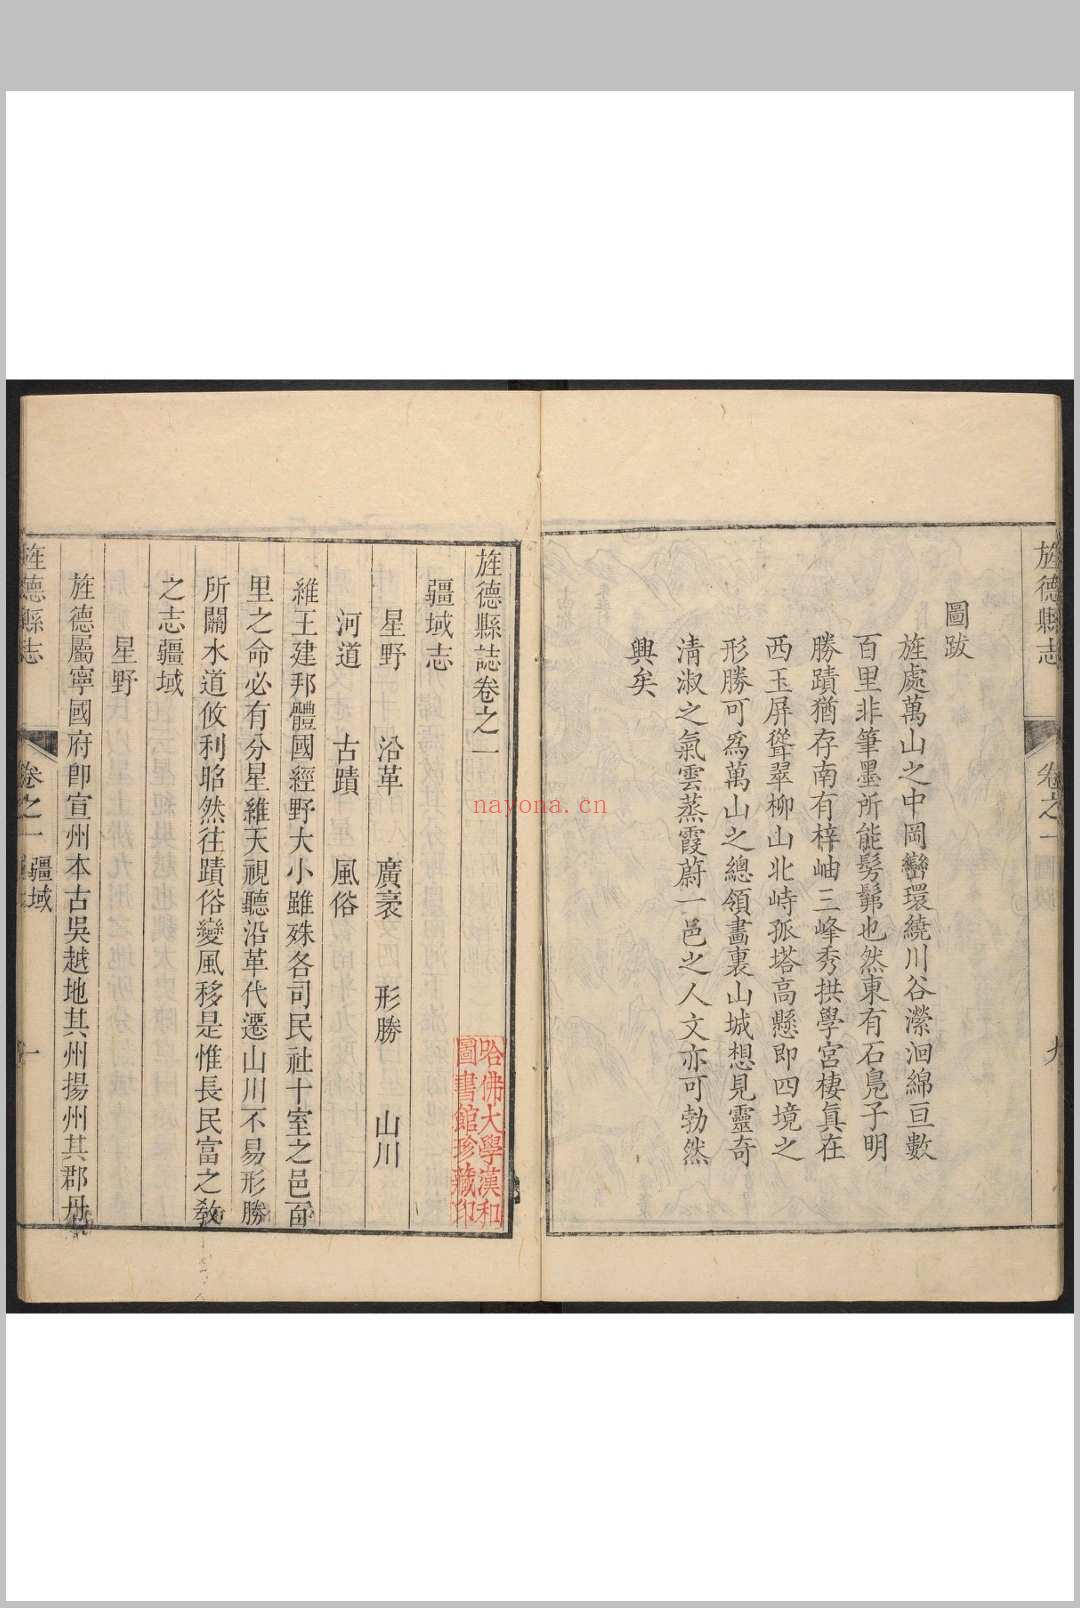 旌德縣志
卷之一
圖跋
九
圖跋
旌處萬山之中岡巒環繞川谷瀠洄綿亘數
百里非筆墨所能髣髴也然東有石鳧子明
勝蹟猶存南有梓岫三峰秀拱學宮棲眞在
西玉屏聳翠柳山北峙孤塔高懸即四境之
形勝可爲萬山之總領畵裏山城想見靈奇
淸淑之氣雲蒸霞蔚一邑之人文亦可勃然
興矣
旌德縣誌卷之一
疆域志
星野 沿革 廣袤 形勝 山川
河道 古蹟 風俗
維王建邦體國經野大小雖殊各司民社十室之邑百
里之命必有分星維天視聽沿革代遷山川不易形勝
所關水道攸利昭然往蹟俗變風移是惟長民富之敎
之志疆域
星野
旌德屬寧國府卽宣州本古吳越地其州揚州其郡丹
旌德縣志
卷之一
疆域
一
哈佛大學漢和
圖書館珍藏印
nayona.cn